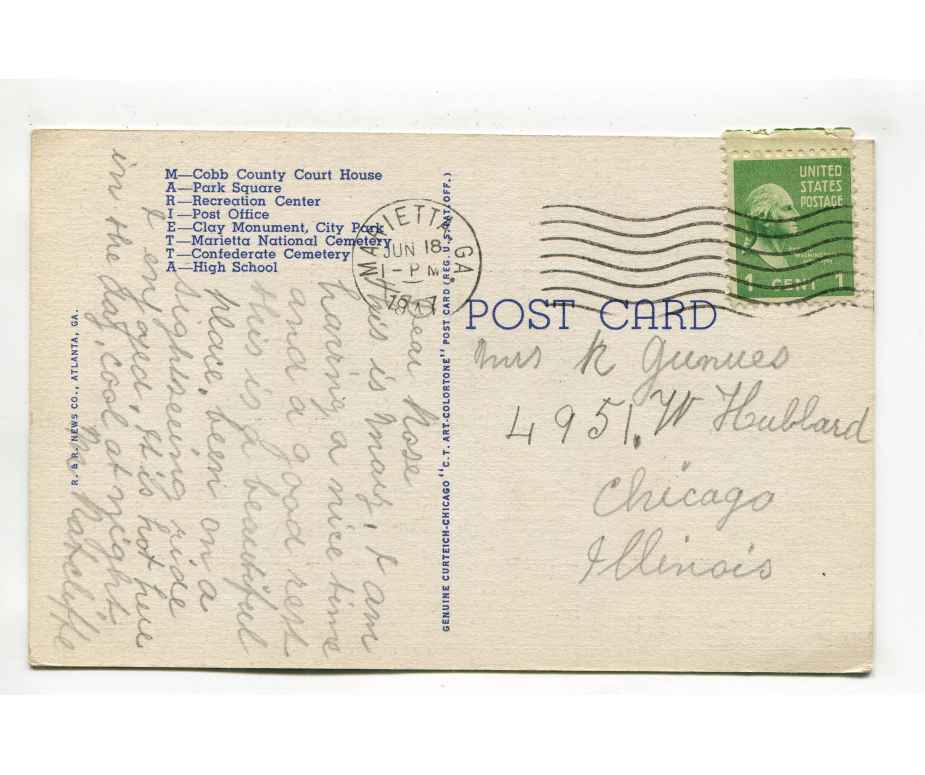 M—Cobb County Court House
A—Park Square
R—Recreation Center
I—Post Office
E—Clay Monument, City Park
T—Marietta National Cemetery
T—Confederate Cemetery
A—High School
R. & R. NEWS CO., ATLANTA, GA.
GENUINE CURTEICH-CHICAGO "C.T. ART-COLORTONE" POST CARD (REG. U.S. PAT. OFF.)
MARIETTA, GA.
JUN 18
1-PM
UNITED
STATES
POSTAGE
WASHINGTON
1 CENT 1
POST CARD
Mrs R
4951. W Hubbard
Chicago
Illinois
Dear Rose
this is Mary, I am
having a nice time
and a good rest
this is a beautiful
place, been on a
sightseeing ride
& enjoyed, it is hot here
in the day, cool at night
Ratcliffe